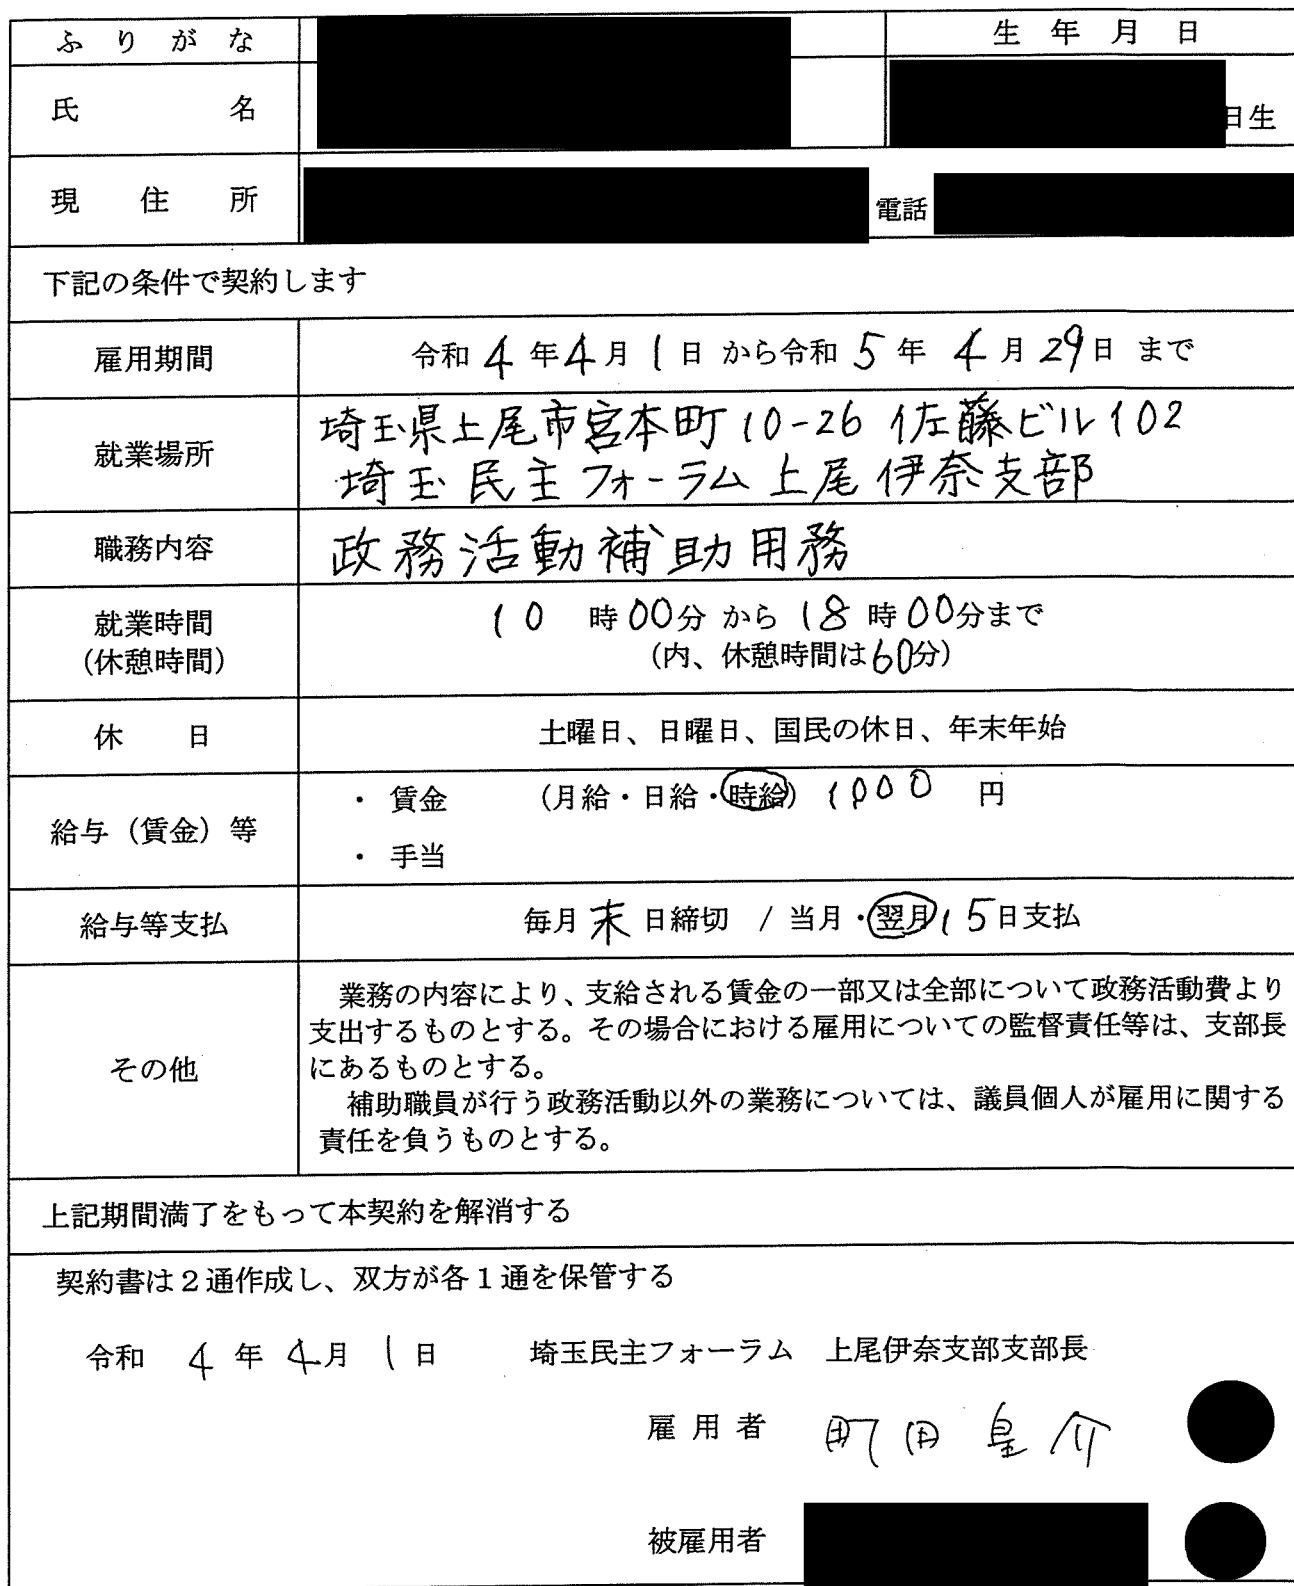 ふりがな
生年月日
氏名
日生
現住所
電話
下記の条件で契約します
雇用期間
令和 4 年 4 月 1 日 から令和 5 年 4 月 29 日 まで
就業場所
埼玉県上尾市宮本町10-26 佐藤ビル102
埼玉民主フォーラム上尾伊奈支部
職務内容
政務活動補助用務
就業時間
(休憩時間)
10 時 00分 から 18 時 00分まで
(内、休憩時間は60分)
休日
土曜日、日曜日、国民の休日、年末年始
給与（賃金）等
・ 賃金 (月給・日給・時給) 1000 円
・ 手当
給与等支払
毎月 末 日締切 / 当月・翌月 15日支払
その他
業務の内容により、支給される賃金の一部又は全部について政務活動費より
支出するものとする。その場合における雇用についての監督責任等は、支部長
にあるものとする。
補助職員が行う政務活動以外の業務については、議員個人が雇用に関する
責任を負うものとする。
上記期間満了をもって本契約を解消する
契約書は２通作成し、双方が各１通を保管する
令和 4 年 4 月 1 日 埼玉民主フォーラム 上尾伊奈支部支部長
雇用者 町田皇介
被雇用者